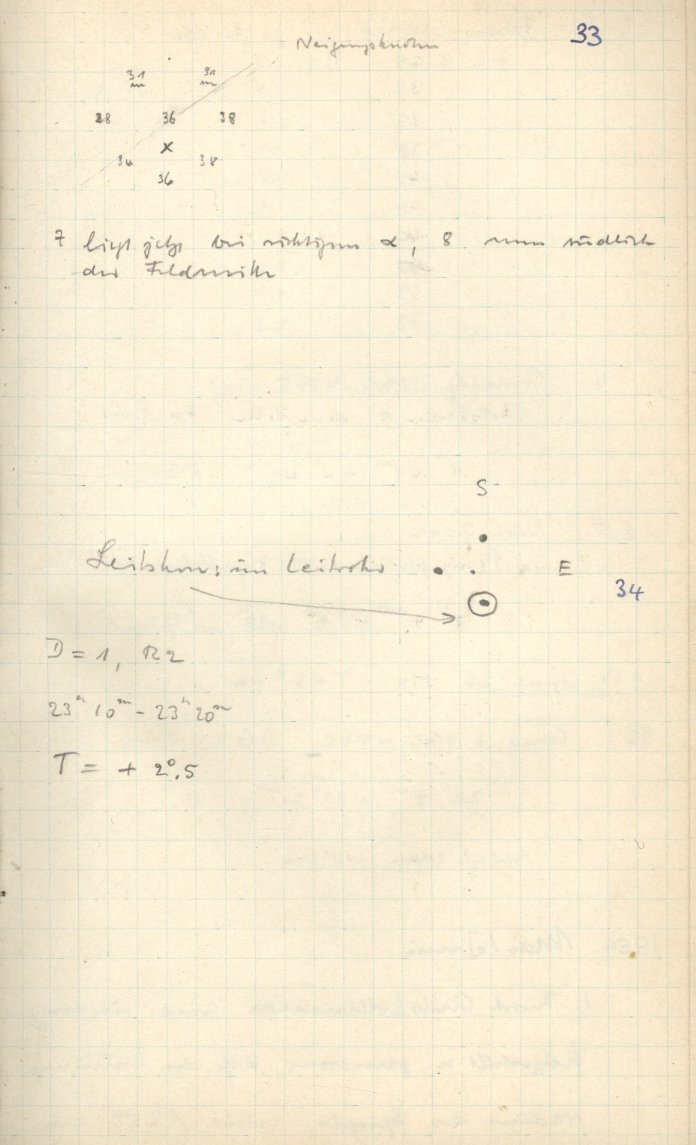 33
31 31
28 36 38
x
34 38
36
7 liegt jetzt bei richtigem α, 8 nun südlich
der Feldmitte
S
Leitstern: im Leitrohr E
34
D = 1, R2
23ʰ 10ᵐ - 23ʰ 20ᵐ
T = + 2°,5